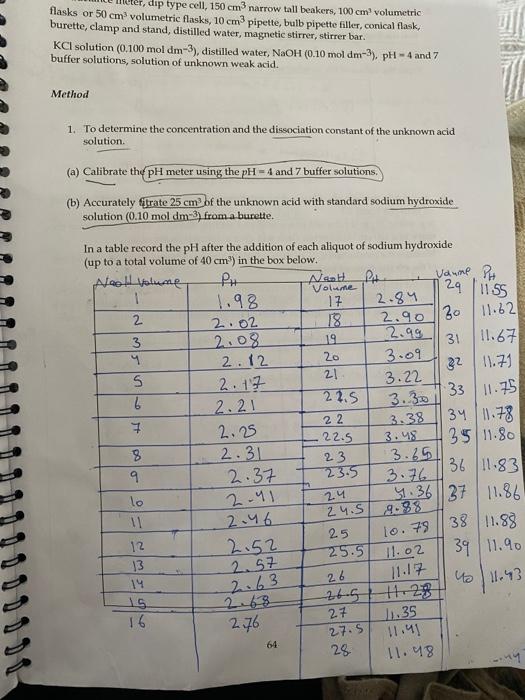 meter, dip type cell, 150 cm³ narrow tall beakers, 100 cm³ volumetric
flasks or 50 cm³ volumetric flasks, 10 cm³ pipette, bulb pipette filler, conical flask,
burette, clamp and stand, distilled water, magnetic stirrer, stirrer bar.
KCl solution (0.100 mol dm⁻³), distilled water, NaOH (0.10 mol dm⁻³), pH = 4 and 7
buffer solutions, solution of unknown weak acid.
Method
1. To determine the concentration and the dissociation constant of the unknown acid
solution.
(a) Calibrate the pH meter using the pH = 4 and 7 buffer solutions.
(b) Accurately titrate 25 cm³ of the unknown acid with standard sodium hydroxide
solution (0.10 mol dm⁻³) from a burette.
In a table record the pH after the addition of each aliquot of sodium hydroxide
(up to a total volume of 40 cm³) in the box below.
NaoH Volume PH
1 1.98
2 2.02
3 2.08
4 2.12
5 2.17
6 2.21
7 2.25
8 2.31
9 2.37
10 2.41
11 2.46
12 2.52
13 2.57
14 2.63
15 2.68
16 2.76
NaoH Volume PH
17 2.84
18 2.90
19 2.99
20 3.09
21 3.22
21.5 3.30
22 3.38
22.5 3.48
23 3.65
23.5 3.76
24 4.36
24.5 9.88
25 10.79
25.5 11.02
26 11.17
26.5 11.28
27 11.35
27.5 11.41
28 11.48
Volume PH
29 11.55
30 11.62
31 11.67
32 11.71
33 11.75
34 11.78
35 11.80
36 11.83
37 11.86
38 11.88
39 11.90
40 11.93
64